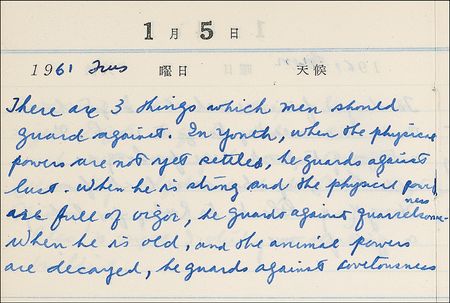 1月5日
1961 Jrus 曜日 天候
There are 3 things which men should
guard against. In Youth, when the physical
powers are not yet settled, he guards against
lust. When he is strong and the physical powers
are full of vigor, he guards against quarrelsome-
ness
When he is old, and the animal powers
are decayed, he guards against covetousness